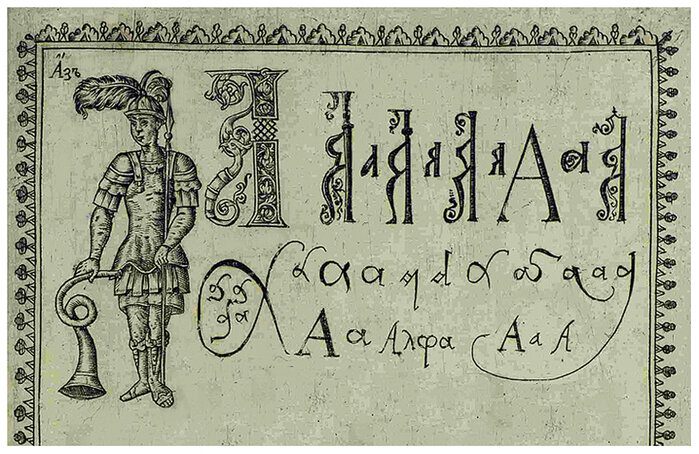 Азъ
А А а А а А а А а А
а а а а а а а а а а а
А а Алфа А а А